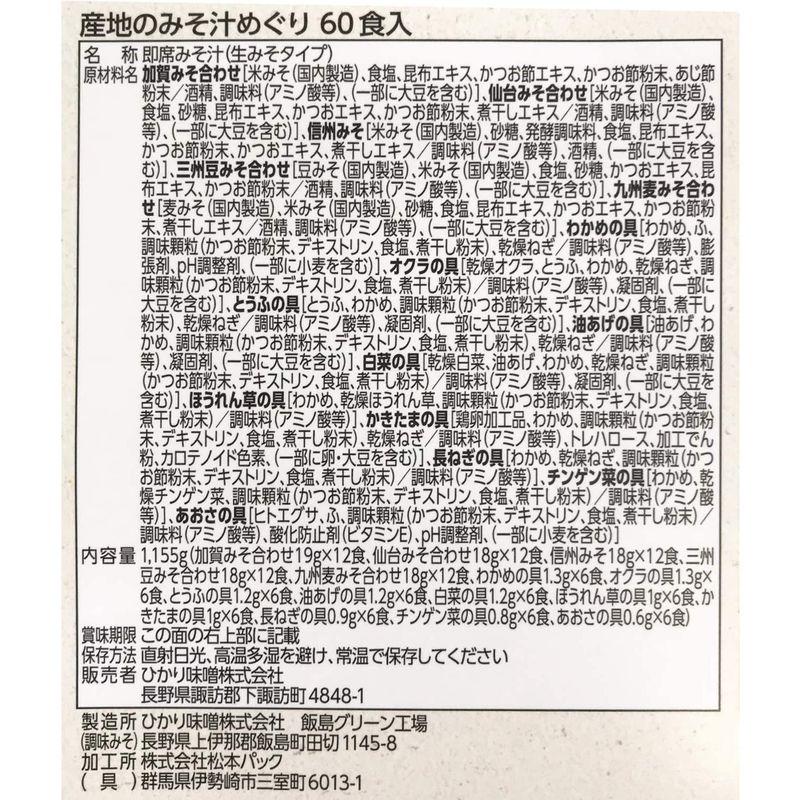 産地のみそ汁めぐり 60食入
名　称 即席みそ汁(生みそタイプ)
原材料名 加賀みそ合わせ[米みそ(国内製造)、食塩、昆布エキス、かつお節エキス、かつお節粉末、あじ節
粉末／酒精、調味料(アミノ酸等)、(一部に大豆を含む)]、仙台みそ合わせ[米みそ(国内製造)、
食塩、砂糖、昆布エキス、かつおエキス、かつお節粉末、煮干しエキス／酒精、調味料(アミノ酸
等)、(一部に大豆を含む)]、信州みそ[米みそ(国内製造)、砂糖、発酵調味料、食塩、昆布エキス、
かつお節粉末、かつおエキス、煮干しエキス／調味料(アミノ酸等)、酒精、(一部に大豆を含
む)]、三州豆みそ合わせ[豆みそ(国内製造)、米みそ(国内製造)、食塩、砂糖、かつおエキス、昆
布エキス、かつお節粉末／酒精、調味料(アミノ酸等)、(一部に大豆を含む)]、九州麦みそ合わ
せ[麦みそ(国内製造)、米みそ(国内製造)、砂糖、食塩、昆布エキス、かつおエキス、かつお節粉
末、煮干しエキス／酒精、調味料(アミノ酸等)、(一部に大豆を含む)]、わかめの具[わかめ、ふ、
調味顆粒(かつお節粉末、デキストリン、食塩、煮干し粉末)、乾燥ねぎ／調味料(アミノ酸等)、膨
張剤、pH調整剤、(一部に小麦を含む)]、オクラの具[乾燥オクラ、とうふ、わかめ、乾燥ねぎ、調
味顆粒(かつお節粉末、デキストリン、食塩、煮干し粉末)／調味料(アミノ酸等)、凝固剤、(一部に
大豆を含む)]、とうふの具[とうふ、わかめ、調味顆粒(かつお節粉末、デキストリン、食塩、煮干し
粉末)、乾燥ねぎ／調味料(アミノ酸等)、凝固剤、(一部に大豆を含む)]、油あげの具[油あげ、わ
かめ、調味顆粒(かつお節粉末、デキストリン、食塩、煮干し粉末)、乾燥ねぎ／調味料(アミノ酸
等)、凝固剤、(一部に大豆を含む)]、白菜の具[乾燥白菜、油あげ、わかめ、乾燥ねぎ、調味顆粒
(かつお節粉末、デキストリン、食塩、煮干し粉末)／調味料(アミノ酸等)、凝固剤、(一部に大豆を含
む)]、ほうれん草の具[わかめ、乾燥ほうれん草、調味顆粒(かつお節粉末、デキストリン、食塩、
煮干し粉末)／調味料(アミノ酸等)]、かきたまの具[鶏卵加工品、わかめ、調味顆粒(かつお節粉
末、デキストリン、食塩、煮干し粉末)、乾燥ねぎ／調味料(アミノ酸等)、トレハロース、加工でん
粉、カロテノイド色素、(一部に卵・大豆を含む)]、長ねぎの具[わかめ、乾燥ねぎ、調味顆粒(かつ
お節粉末、デキストリン、食塩、煮干し粉末)／調味料(アミノ酸等)]、チンゲン菜の具[わかめ、乾
燥チンゲン菜、調味顆粒(かつお節粉末、デキストリン、食塩、煮干し粉末)／調味料(アミノ酸
等)]、あおさの具[ヒトエグサ、ふ、調味顆粒(かつお節粉末、デキストリン、食塩、煮干し粉末)／
調味料(アミノ酸等)、酸化防止剤(ビタミンE)、pH調整剤、(一部に小麦を含む)]
内容量 1,155g(加賀みそ合わせ19g×12食、仙台みそ合わせ18g×12食、信州みそ18g×12食、三州
豆みそ合わせ18g×12食、九州麦みそ合わせ18g×12食、わかめの具1.3g×6食、オクラの具1.3g×
6食、とうふの具1.2g×6食、油あげの具1.2g×6食、白菜の具1.2g×6食、ほうれん草の具1g×6食、か
きたまの具1g×6食、長ねぎの具0.9g×6食、チンゲン菜の具0.8g×6食、あおさの具0.6g×6食)
賞味期限 この面の右上部に記載
保存方法 直射日光、高温多湿を避け、常温で保存してください
販売者 ひかり味噌株式会社
長野県諏訪郡下諏訪町4848-1
製造所 ひかり味噌株式会社　飯島グリーン工場
(調味みそ) 長野県上伊那郡飯島町田切1145-8
加工所 株式会社松本パック
(　具　) 群馬県伊勢崎市三室町6013-1